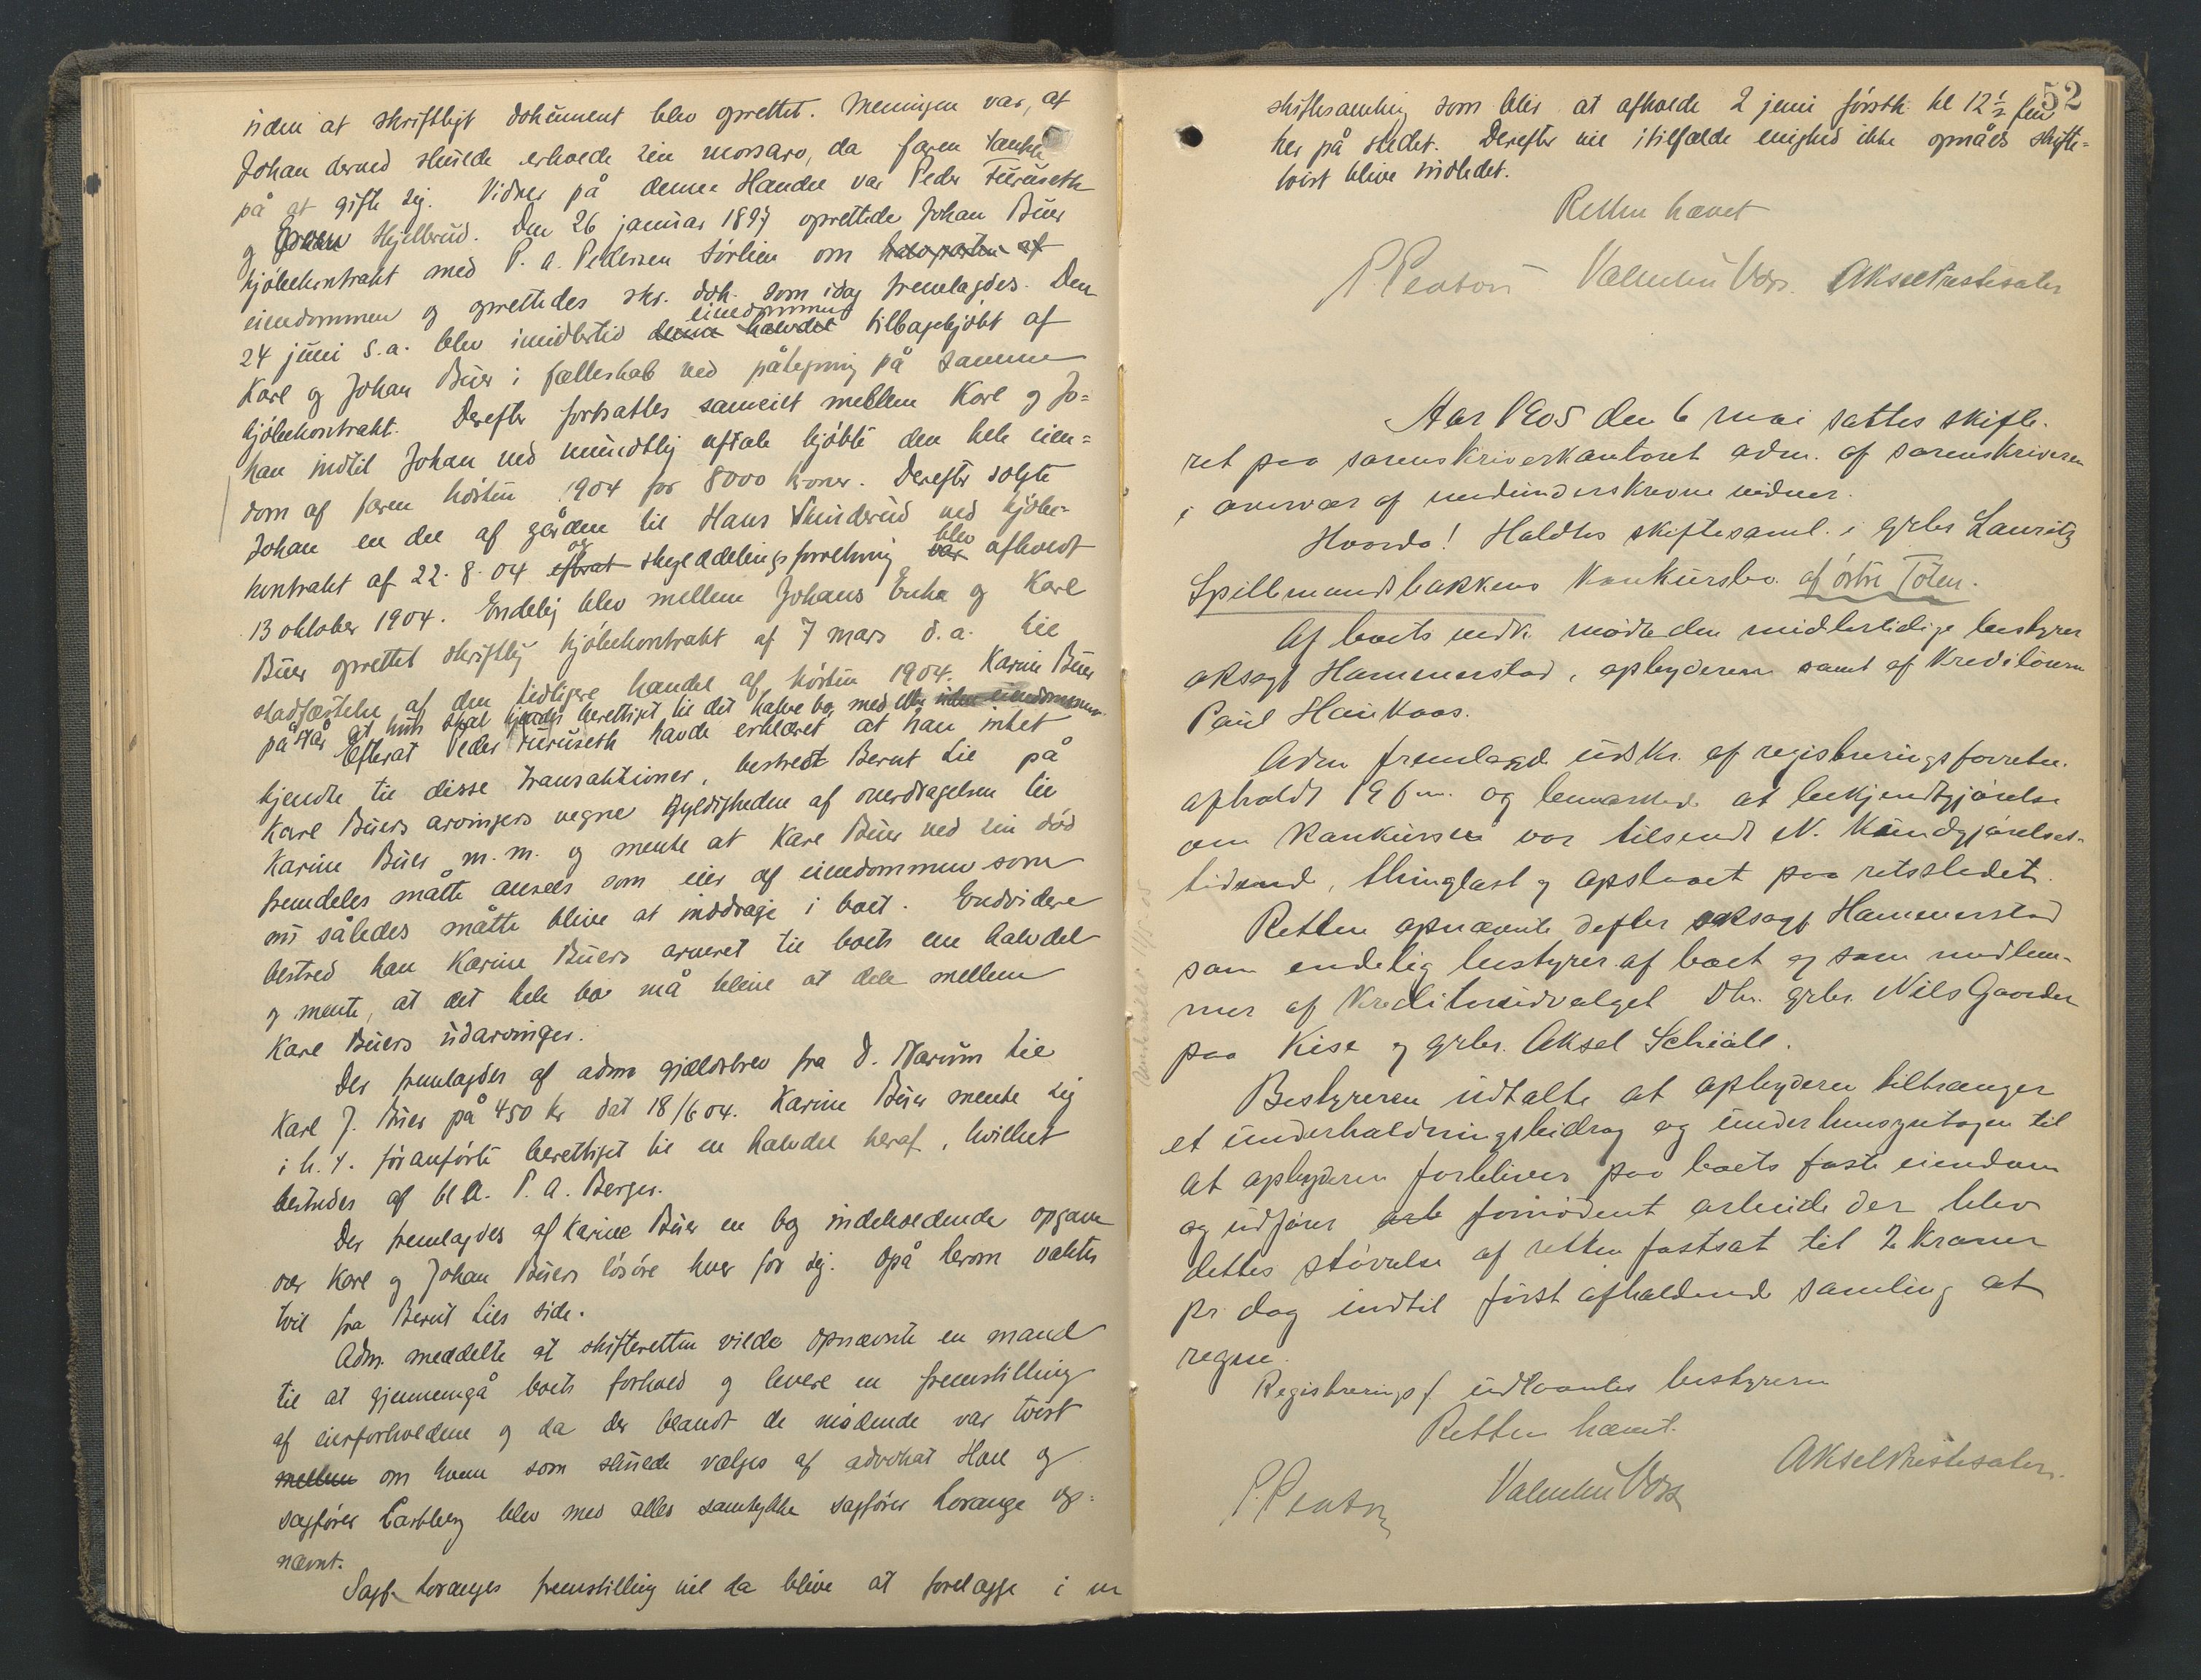 uden at skriftligt dokument blev oprettet. Meningen var, at
Johan derved skulde erholde sin morsarv, da faren tænkte
på at gifte sig. Vidner på denne Handel var Peder Furuseth
og Skjellerud. Den 26 januar 1897 oprettede Johan Buer
kjøbekontrakt med P. A. Pedersen Sørlien om halvparten af
eiendommen og oprettedes skr. dok. som idag fremlagdes. Den
eiendommen
24 juni s.a. blev imidlertid denne halvdel tilbagekjøbt af
Karl og Johan Buer i fælleskab ved påtegning på samme
kjøbekontrakt. Derefter fortsattes sameiet mellem Karl og Jo=
han indtil Johan ved mundtlig aftale kjøbte den hele eien=
dom af faren høsten 1904 for 8000 kroner. Derefter solgte
Johan en del af gården til Hans Skinderud ved kjøbe-
og blev
kontrakt af 22-8-04 efterat skylddelingsforretning var afholdt
13 oktober 1904. Endelig blev mellem Johans Enke og Karl
Buer oprettet skriftlig kjøbekontrakt af 7 mars d.a. til
stadfæstelse af den tidligere handel af høsten 1904. Karine Buer
påstår at hun skal kjendes berettiget til det halve bo med eiendommen.
Efterat Peder Furuseth havde erklæret at han intet
kjendte til disse transaktioner, bestredt Bernt Lie på
Karl Buers arvingers vegne gyldigheden af overdragelsen til
Karine Buer m.m. og mente at Karl Buer ved sin død
fremdeles måtte ansees som eier af eiendommen som
nu således måtte blive at inddrage i boet. Endvidere
bestred han Karine Buers arveret til boets ene halvdel
og mente, at det hele bo må blive at dele mellem
Karl Buers udarvinger.
Der fremlagdes af adm gjældsbrev fra D. Narum til
Karl J. Buer på 450 kr dat 18/6 04. Karine Buer mente sig
i h. t. foranførte berettiget til en halvdel heraf, hvilket
bestredes af bl.a. P. A. Berger.
Der fremlagdes af Karine Buer en bog indeholdende opgave
over Karl og Johan Buers løsøre hver for sig. Også herom vaktes
tvil fra Bernt Lies side.
Adm. meddelte at skifteretten vilde opnævnte en mand
til at gjennemgå boets forhold og levere en fremstilling
af eierforholdene og da der blandt de mødende var tvist
mellem om hvem som skulde vælges af advokat Hoel og
sagfører Carlberg blev med alles samtykke sagfører Lorange op=
nævnt.
Sagf. Loranges fremstilling vil da blive at forelægge i en
52
skiftesamling som blir at afholde 2 juni førstk. kl 12 1/2 fm
her på stedet. Derefter vil i tilfælde enighed ikke opnåes skifte=
tvist blive indledet.
Retten hævet
P. Penton Valentin Voss. Aksel Præstesater
Aar 1905 den 6 mai sattes skifte-
ret paa sorenskriverkontoret adm. af sorenskriveren
i overvær af medunderskrevne vidner.
Hvorda! Holdtes skiftesaml. i grbr Lauritz
Spillmandsbakkens konkursbo af østre Toten.
Af boets vedk. mødte den midlertidige bestyrer
oksagf Hammerstad, opbyderen samt af kreditorern
Paul Haukaas.
Adm fremlagde udskr. af registreringsforretn.
afholdt 19 f.m. og bemærkede at bekjendtgjørelse
om konkursen var tilsendt N. Kundgjørelses-
tidende, thinglæst og opslaaet paa retsstedet.
Retten opnævnte defter oksagf Hammerstad
som endelig bestyrer af boet og som medlem-
mer af kreditorudvalget Dhr. grbr. Nils Gaarder
paa Kise og grbr. Aksel Schiøll.
Bestyreren udtalte at opbyderen tiltrænger
et underholdningsbidrag og under hensyntagen til
at opbyderen forbliver paa boets faste eiendom
og udfører arb fornødent arbeide der blev
dettes størrelse af retten fastsat til 2 kroner
pr dag indtil først afholdende samling at
regne.
Registreringsf. udlaantes bestyreren
Retten hævet.
P. Penton Valentin Voss Aksel Præstesater.